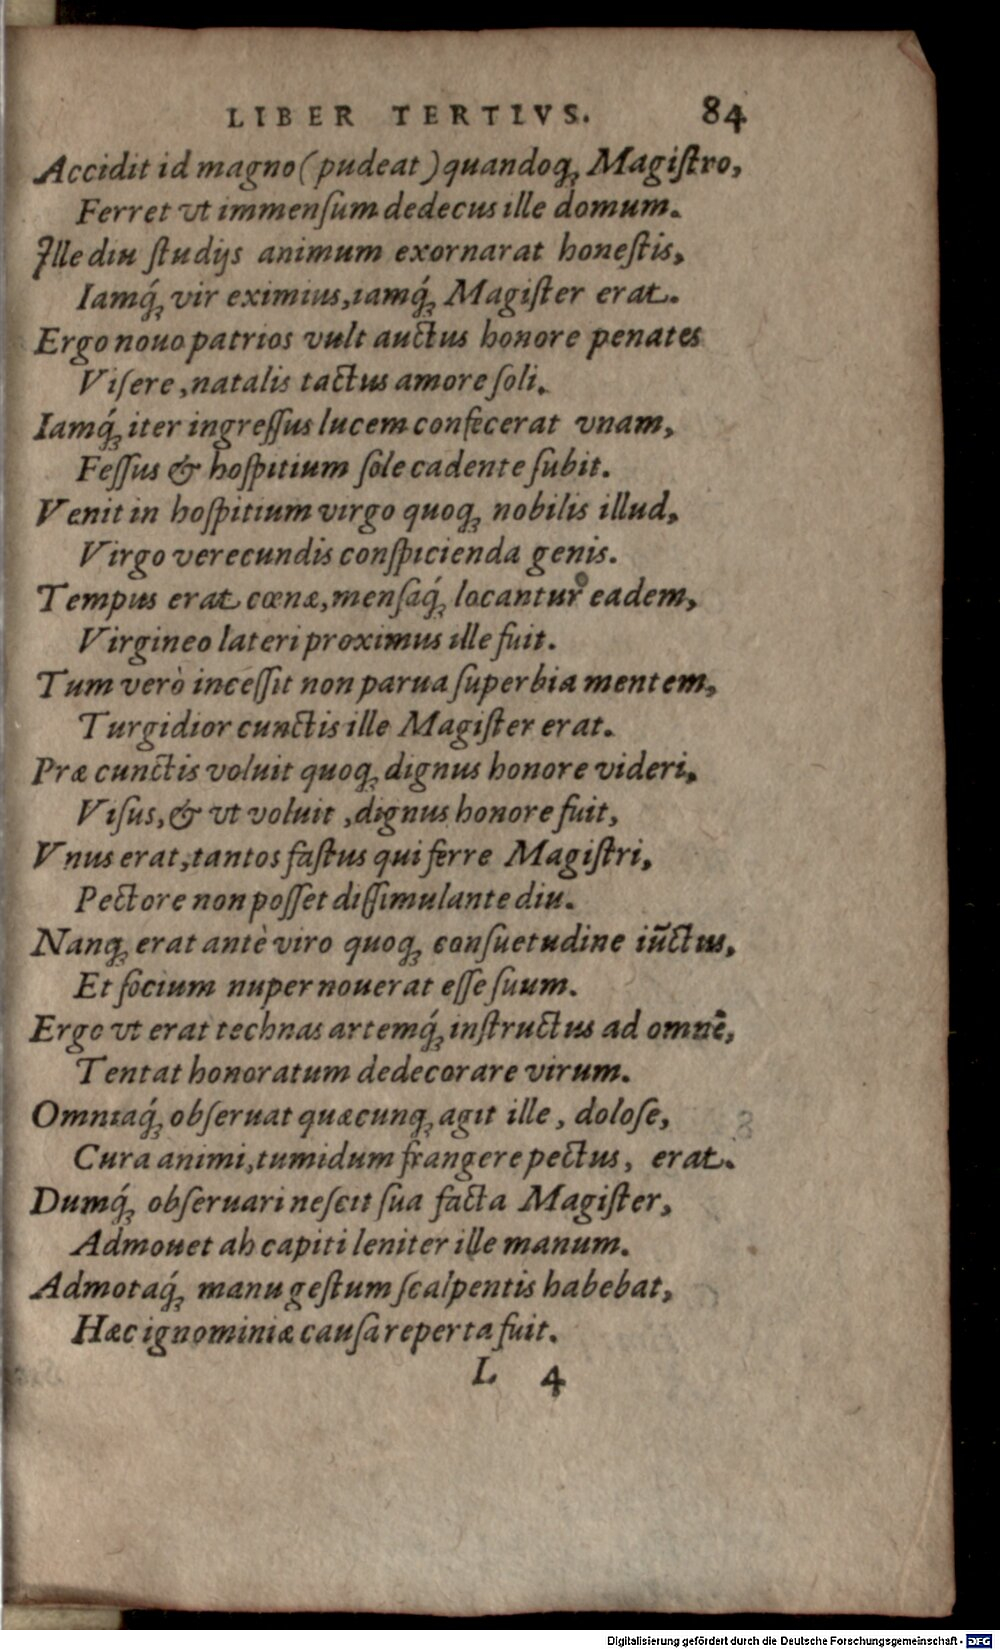 LIBER TERTIVS. 84
Accidit id magno (pudeat) quandoq; Magiſtro,
Ferret vt immenſum dedecus ille domum.
Ille diu ſtudijs animum exornarat honeſtis,
Iamq́; vir eximius, iamq́; Magiſter erat.
Ergo nouo patrios vult auctus honore penates
Viſere, natalis tactus amore ſoli.
Iamq́; iter ingreſſus lucem confecerat vnam,
Feſſus & hoſpitium ſole cadente ſubit.
Venit in hoſpitium virgo quoq; nobilis illud,
Virgo verecundis conſpicienda genis.
Tempus erat cœnæ, menſaq́; locantur eadem,
Virgineo lateri proximus ille fuit.
Tum verò inceſſit non parua ſuperbia mentem,
Turgidior cunctis ille Magiſter erat.
Præ cunctis voluit quoq; dignus honore videri,
Viſus, & vt voluit, dignus honore fuit,
Vnus erat, tantos faſtus qui ferre Magiſtri,
Pectore non poſſet diſſimulante diu.
Nanq; erat antè viro quoq; conſuetudine iūctus,
Et ſocium nuper nouerat eſſe ſuum.
Ergo vt erat technas artemq́; inſtructus ad omnē,
Tentat honoratum dedecorare virum.
Omniaq́; obſeruat quæcunq; agit ille, doloſe,
Cura animi, tumidum frangere pectus, erat.
Dumq́; obſeruari neſcit ſua facta Magiſter,
Admouet ah capiti leniter ille manum.
Admotaq́; manu geſtum ſcalpentis habebat,
Hæc ignominiæ cauſa reperta fuit.
L 4
Digitalisierung gefördert durch die Deutsche Forschungsgemeinschaft - DFG